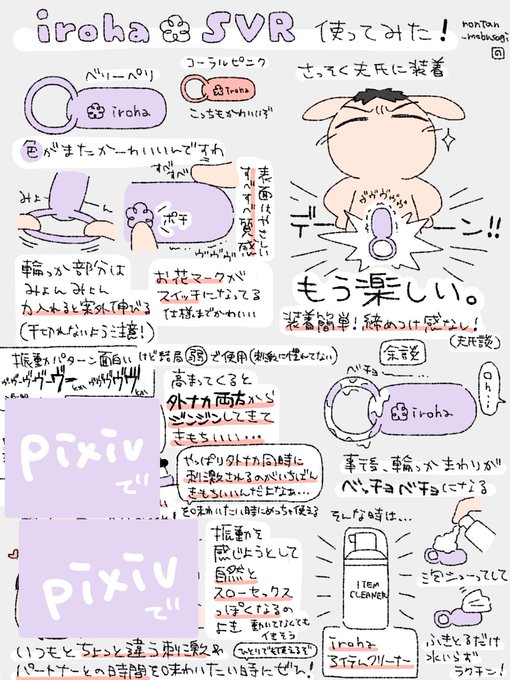 iroha SVR 使ってみた!
noritan
-mobusagi
ベリーペリ
iroha
コーラルピンク
iroha
こっちもかわいいぞ
色がまたかーわいいんですわ
みょ〜ん
すべすべ
ポチ
ヴヴヴヴ
表面はやさしい
すべすべ質感
輪っか部分は
みょんみょん
力入れると案外伸びる
(千切れないよう注意!)
お花マークが
スイッチになってる
仕様までかわいい
さっそく夫氏に装着
ヴヴヴヴヴ
デーーン!!
もう楽しい。
装着簡単!締めつけ感なし!
(夫氏談)
振動パターン面白いけど結局弱で使用(刺激に慣れてない)
高まってくると
外ナカ両方から
ジンジンしてきて
きもちいい…
やっぱり外ナカ同時に
刺激されるのがいちばん
きもちいいんだよなぁ…
を味わいたい時にめっちゃ使える
pixivで
pixivで
振動を
感じようとして
自然と
スローセックス
っぽくなるの
よき
動いてなくても
イキそう
いつもとちょっと違う刺激&
(ひとりでも使えるぞ)
パートナーとの時間を味わいたい時にぜひ!
余談
ベチョ
oh...
iroha
事後、輪っかまわりが
ベッチョベチョになる
そんな時は…
ITEM
CLEANER
iroha
アイテムクリーナー
泡をシューってして
ふきとるだけ
水いらず
ラクチン!